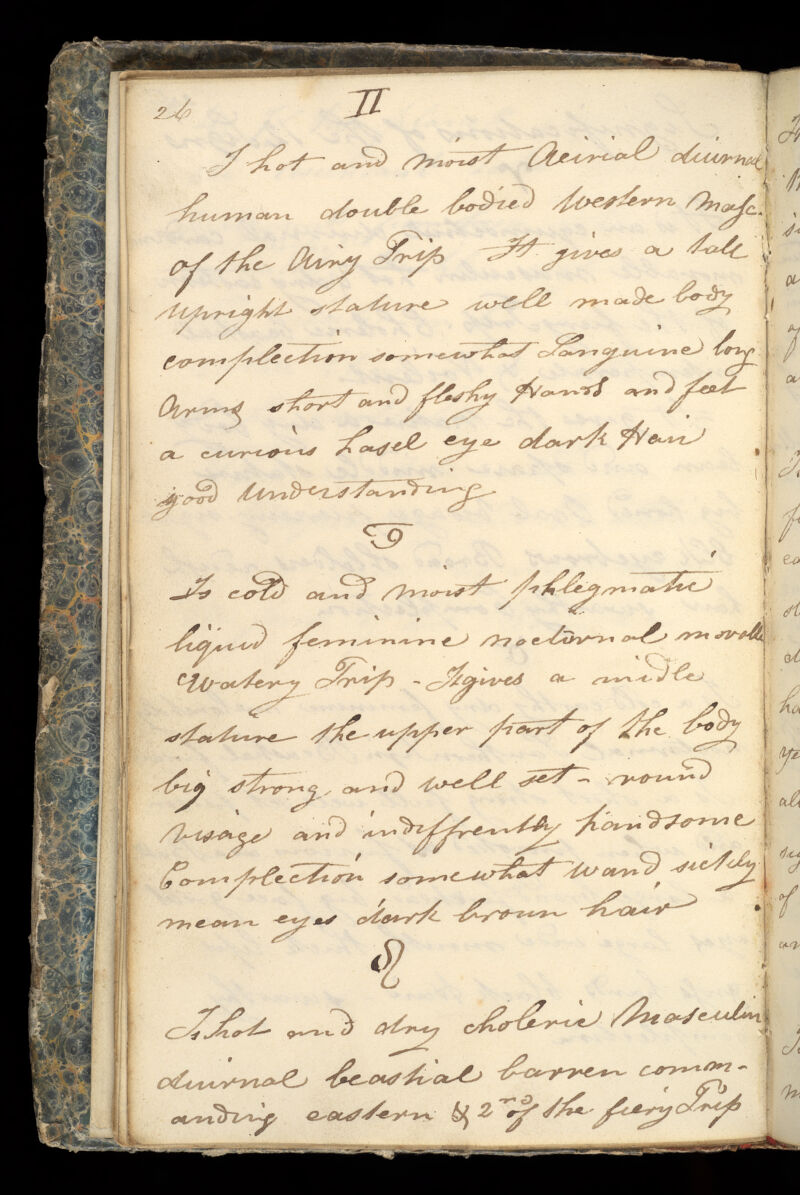 26
II
I hot and moist Aeirial diurnal
human double bodied Western Masc.
of the Airy Trip It gives a tall
upright stature well made body
complection somewhat Sanguine long
Arms short and fleshy Hands and feet
a curious hasel eye dark Hair
good understanding
♋
Is cold and moist phlegmatic
liquid feminine nocturnal movable
Watery Trip - It gives a midle
stature the upper part of the body
big strong and well set - round
visage and indiffrently handsome
Complection somewhat wand sickly
mean eyes dark broun hair
♌
Is hot and dry choleric Masculin
diurnal beastial barren comm-
anding eastern & 2nd of the fiery Trip